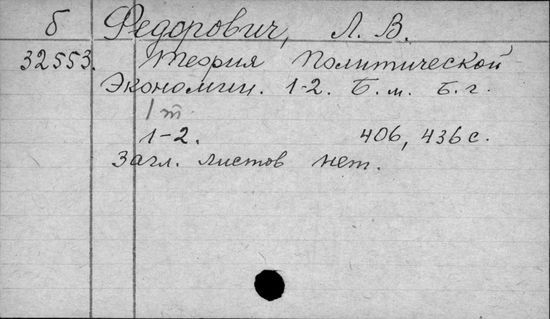 б Федорович, Л. В.
32553. Теория политической
Экономии. 1-2. Б. м. Б. г.
1 т.
1-2. 406, 436 с.
Загл. листов нет.